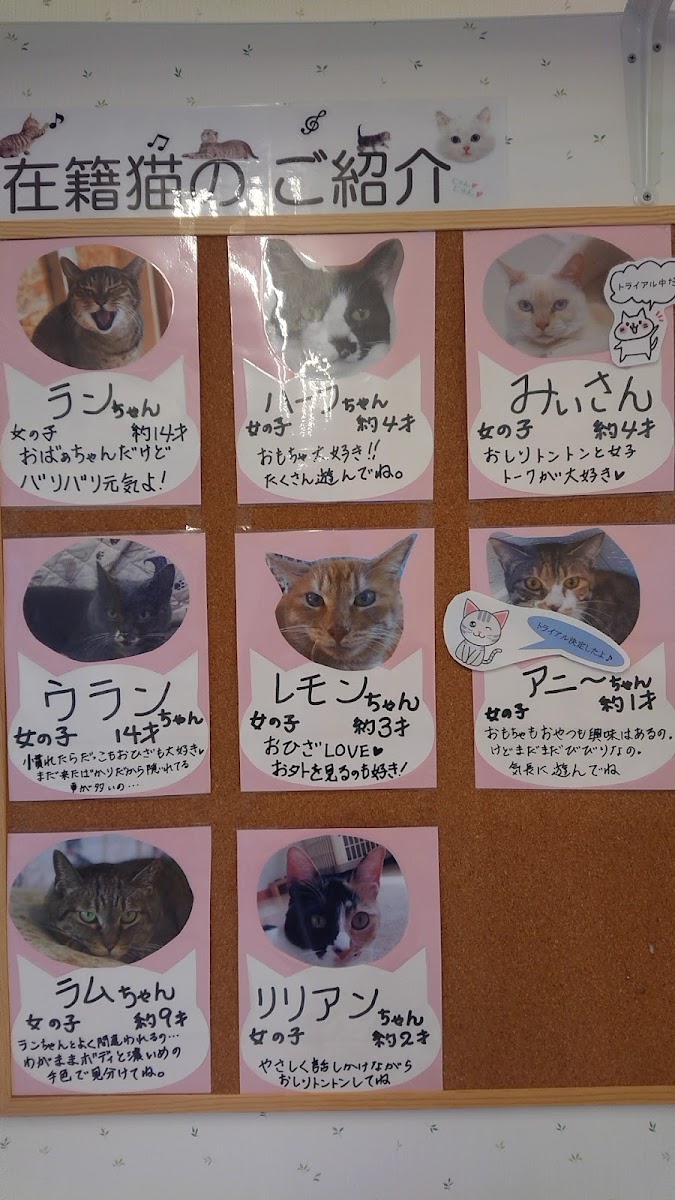 在籍猫のご紹介
にゃん
にゃん
ランちゃん
女の子 約14才
おばあちゃんだけど
バリバリ元気よ!
ハーフちゃん
女の子 約4才
おもちゃ大好き!!
たくさん遊んでね。
トライアル中だ
みぃさん
女の子 約4才
おしりトントンと女子
トークが大好き♥
ウランちゃん
女の子 14才
慣れたらだっこもおひざも大好き♥
まだ来たばかりだから隠れてる
事が多いの…
レモンちゃん
女の子 約3才
おひざLOVE♥
お外を見るのも好き!
トライアル決定したよ♪
アニ〜ちゃん
女の子 約1才
おもちゃもおやつも興味はあるの。
けどまだまだびびりなの。
気長に遊んでね
ラムちゃん
女の子 約9才
ランちゃんとよく間違われるの…
わがままボディと濃いめの
毛色で見分けてね。
リリアンちゃん
女の子 約2才
やさしく話しかけながら
おしりトントンしてね